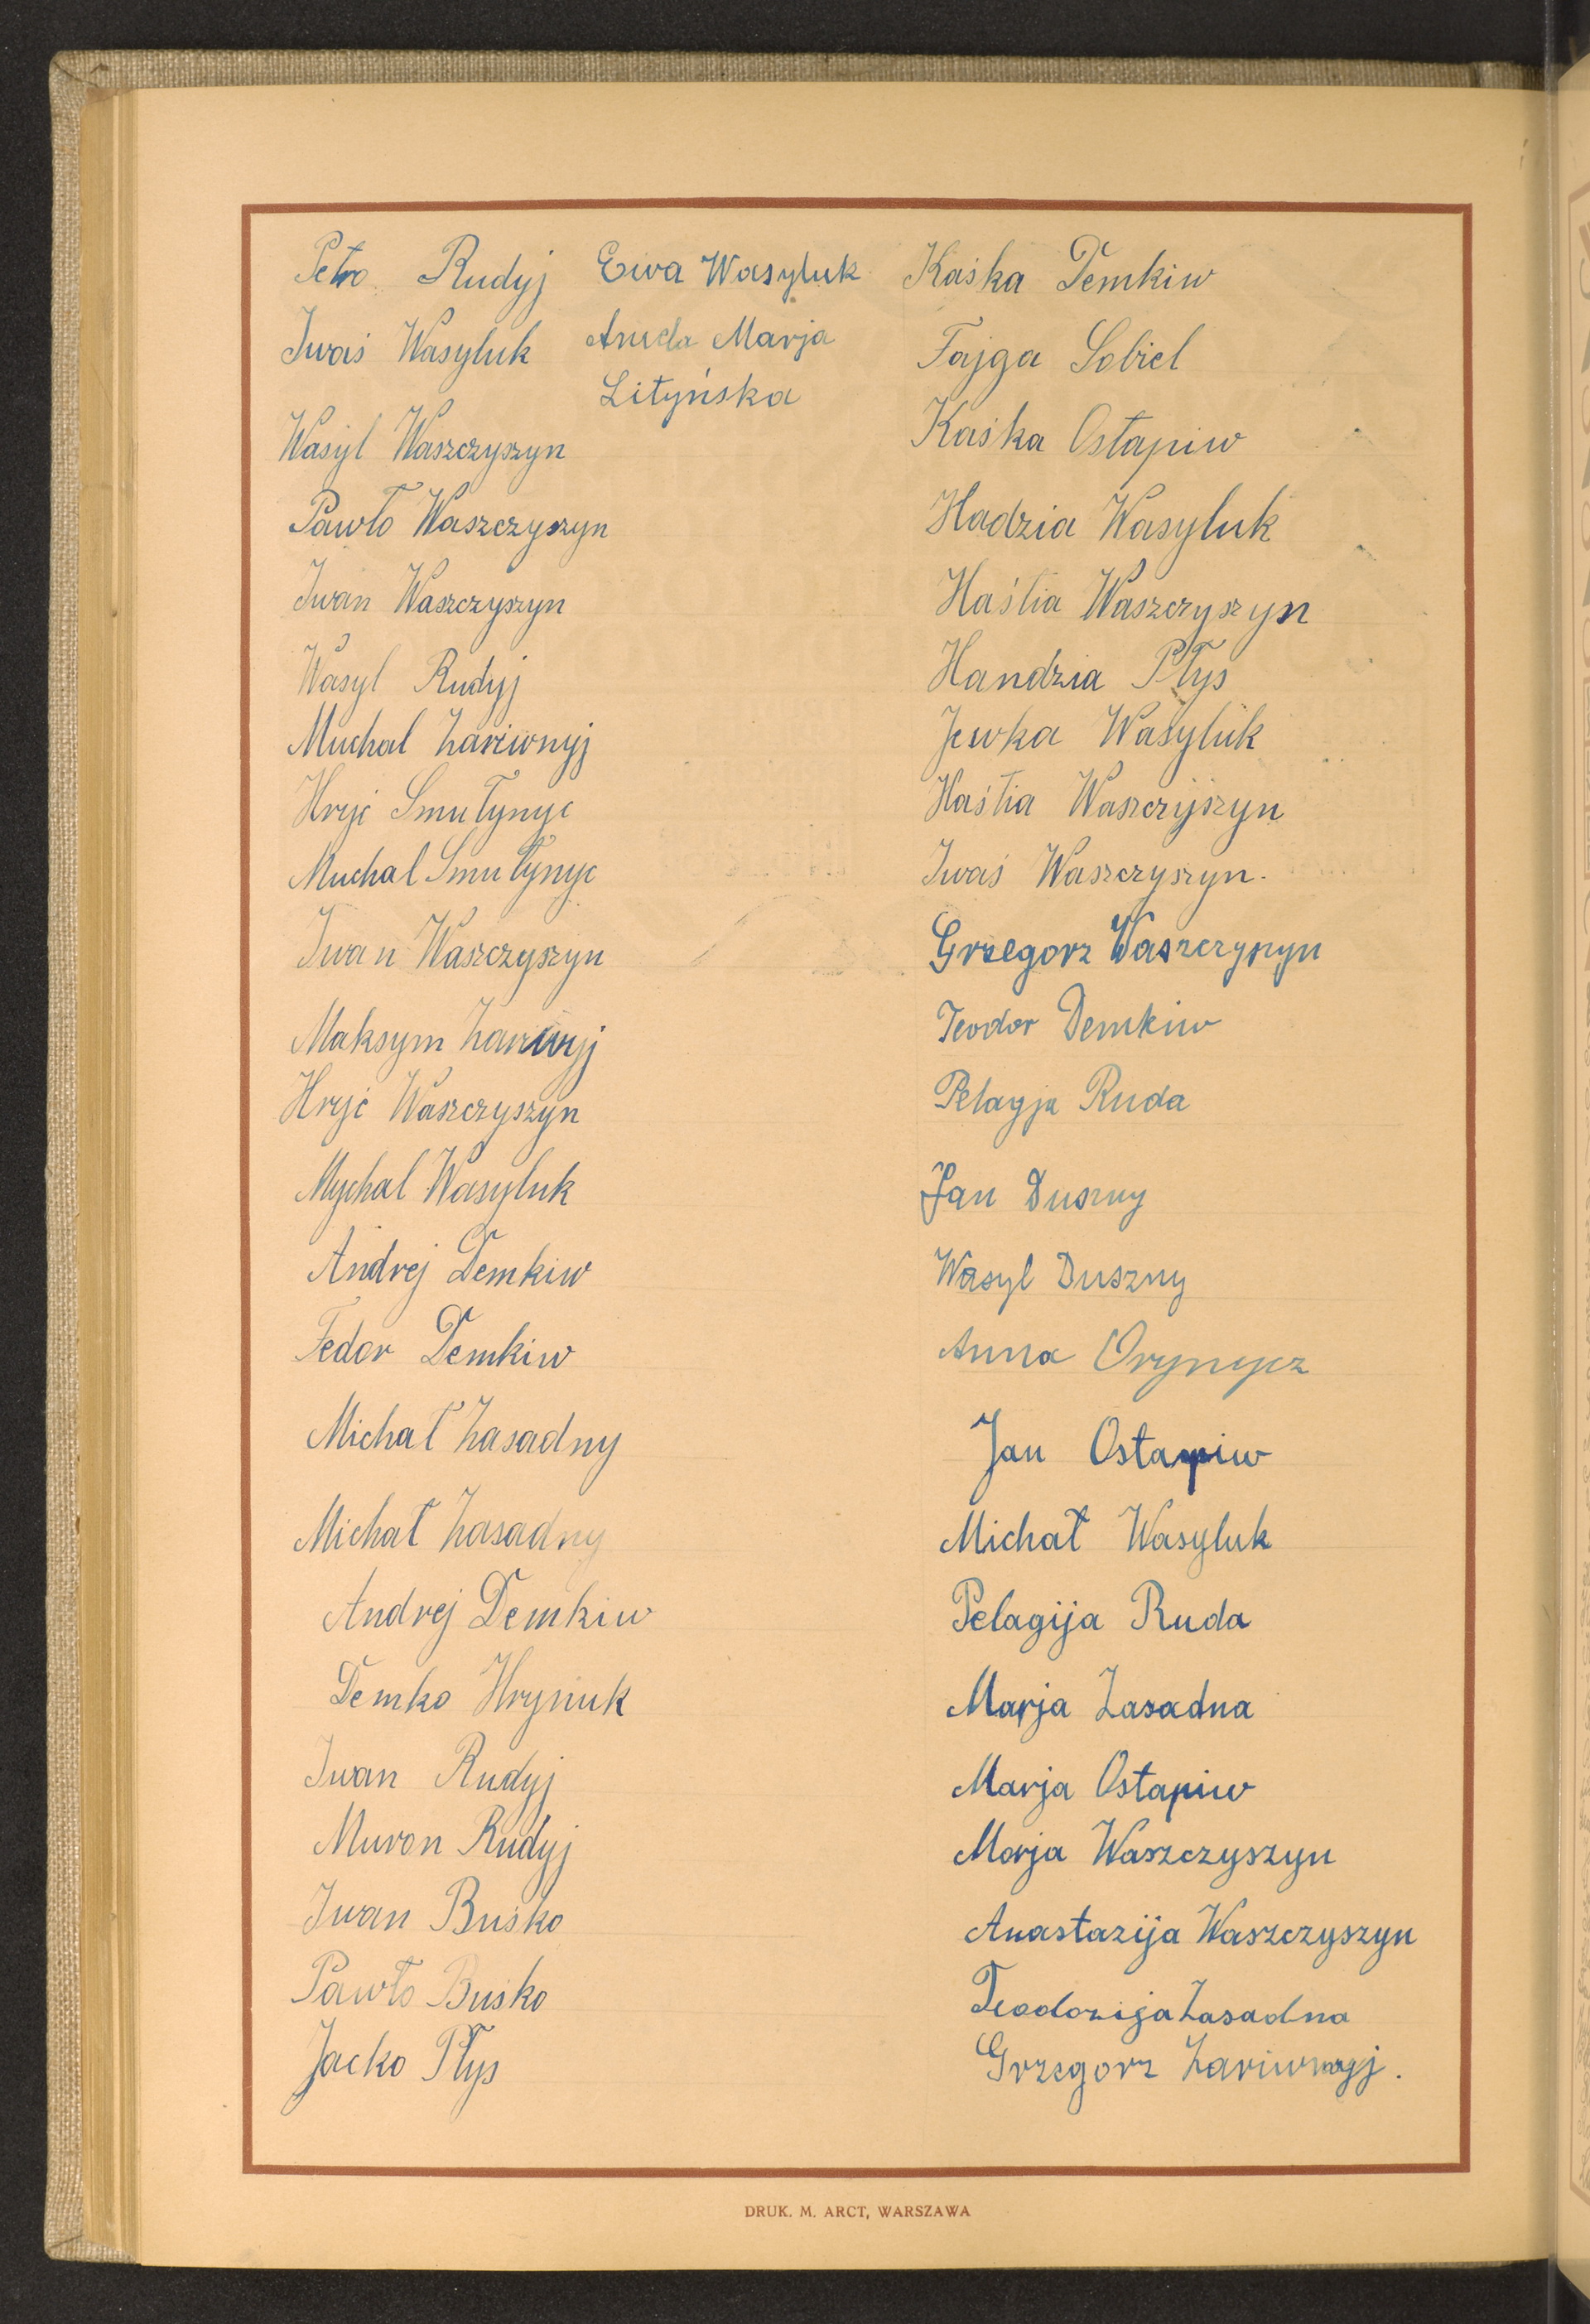 Petro Rudyj
Iwaś Wasyluk
Wasyl Waszczyszyn
Pawło Waszczyszyn
Iwan Waszczyszyn
Wasyl Rudyj
Muchal Zariwnyj
Hryć Smutynyc
Muchal Smutynyc
Iwan Waszczyszyn
Maksym
Hryć Waszczyszyn
Mychal Wasyluk
Andrej Demkiw
Fedor Demkiw
Michał Zasadny
Michał Zasadny
Andrej Demkiw
Demko Hryniuk
Iwan Rudyj
Muron Rudyj
Iwan Buśko
Pawło Busko
Jacko Płys
Ewa Wasyluk
Aniela Marja
Lityńska
Kaśka Demkiw
Fajga Sobiel
Kaśka Ostapiw
Hadzia Wasyluk
Haśtia Waszczyszyn
Handzia Płys
Jewka Wasyluk
Haśtia Waszczyszyn
Iwaś Waszczyszyn.
Grzegorz Waszczyszyn
Teodor Demkiw
Pelagja Ruda
Jan Duszny
Wasyl Duszny
Anna Orynycz
Jan Ostapiw
Michał Wasyluk
Pelagija Ruda
Marja Zasadna
Marja Ostapiw
Marja Waszczyszyn
Anastazija Waszczyszyn
Teodozija Zasadna
Grzegorz Zariwnyj.
DRUK. M. ARCT, WARSZAWA